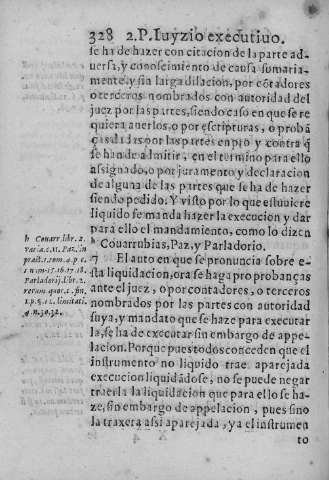 328 2.P. Iuyzio executiuo.
se ha de hazer con citacion de la parte ad-
uersa, y conoscimiento de causa sumaria-
mente, y sin larga dilacion, por cõtadores
o terceros nombrados con autoridad del
juez por las partes, siendo caso en que se re
quiera auerlos, o por escripturas, o probã
ças dadas por las partes en pro y contra q̃
se han de admitir, en el termino para ello
assignado, o por juramento y declaracion
de alguna de las partes que se ha de hazer
siendo pedido. Y visto por lo que estuuiere
liquido se manda hazer la execucion y dar
para ello el mandamiento, como lo dizen
h Couarrubias, Paz, y Parladorio.
7 El auto en que se pronuncia sobre e-
sta liquidacion, ora se haga pro probanças
ante el juez, o por contadores, o terceros
nombrados por las partes con autoridad
suya, y mandato que se haze para executar
la, se ha de executar sin embargo de appe-
lacion. Porque pues todos conceden que el
instrumento no liquido trae aparejada
execucion liquidãdose, no se puede negar
traerla la liquidacion que para ello se ha-
ze, sin embargo de apelacion, pues sino
la traxera assi aparejada, ya el instrumen
to
h Couarr. libr. 2.
Varia. c. 11. Paz, in
pract. 1. tom. 4. p. c.
1 n. nu. 15. 16. 17. 18.
Parladorij. libr. 2.
rerum quot. c. fin.
1. p. §. 12. limitati.